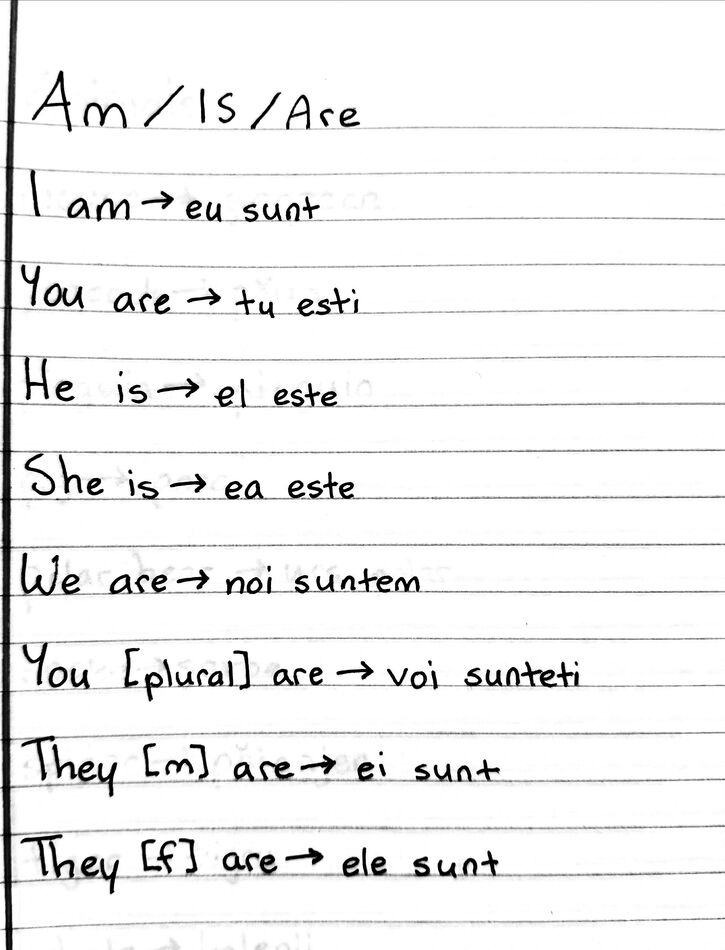 Am / Is / Are
I am → eu sunt
You are → tu esti
He is → el este
She is → ea este
We are → noi suntem
You [plural] are → voi sunteti
They [m] are → ei sunt
They [f] are → ele sunt